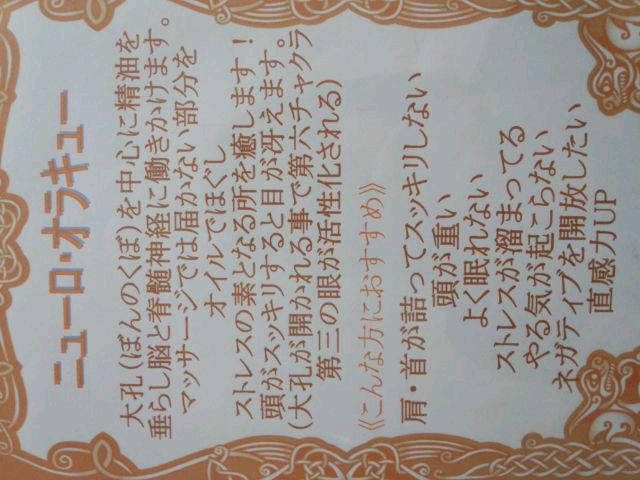 ニューロ・オラキュー
大孔(ぼんのくぼ)を中心に精油を
垂らし脳と脊髄神経に働きかけます。
マッサージでは届かない部分を
オイルでほぐし
ストレスの素となる所を癒します!
頭がスッキリすると目が冴えます。
(大孔が開かれる事で第六チャクラ
第三の眼が活性化される)
《こんな方におすすめ》
肩・首が詰ってスッキリしない
頭が重い
よく眠れない
ストレスが溜まってる
やる気が起こらない
ネガティブを開放したい
直感力UP